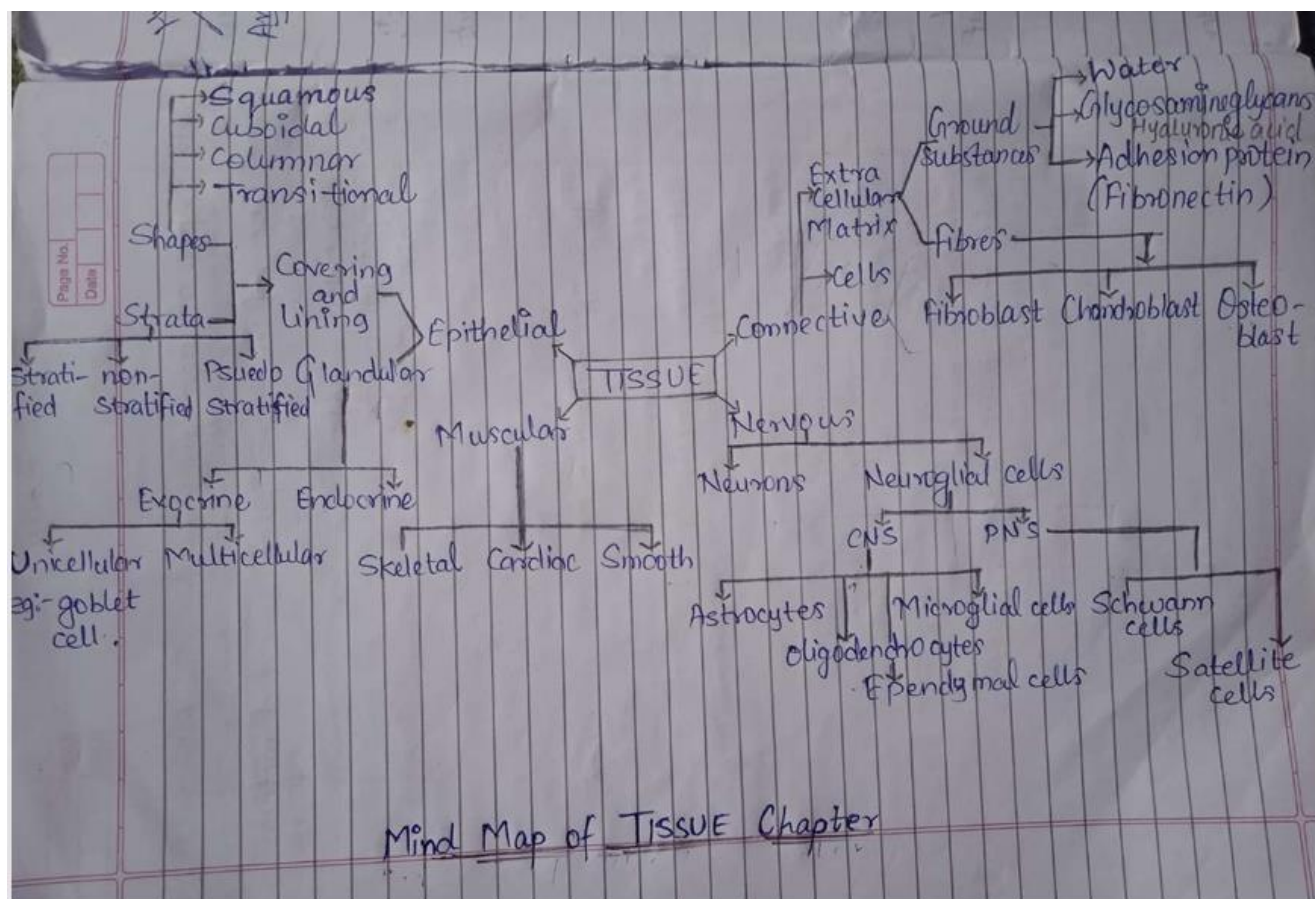 Squamous
Cuboidal
Columnar
Transitional
Shapes
Strata
Covering
and
Lining
Strati-
fied
non-
stratified
Psuedo
stratified
Glandular
Epithelial
Exocrine
Endocrine
Unicellular
eg:- goblet
cell.
Multicellular
TISSUE
Muscular
Skeletal
Cardiac
Smooth
Connective
Extra
Cellular
Matrix
Cells
Ground
substances
Water
Glycosaminoglycans
Hyaluronic acid
Adhesion protein
(Fibronectin)
Fibres
Fibroblast
Chondroblast
Osteo-
blast
Nervous
Neurons
Neuroglial cells
CNS
PNS
Astrocytes
Oligodendrocytes
Ependymal cells
Microglial cells
Schwann
cells
Satellite
cells
Page No.
Date
Mind Map of TISSUE Chapter